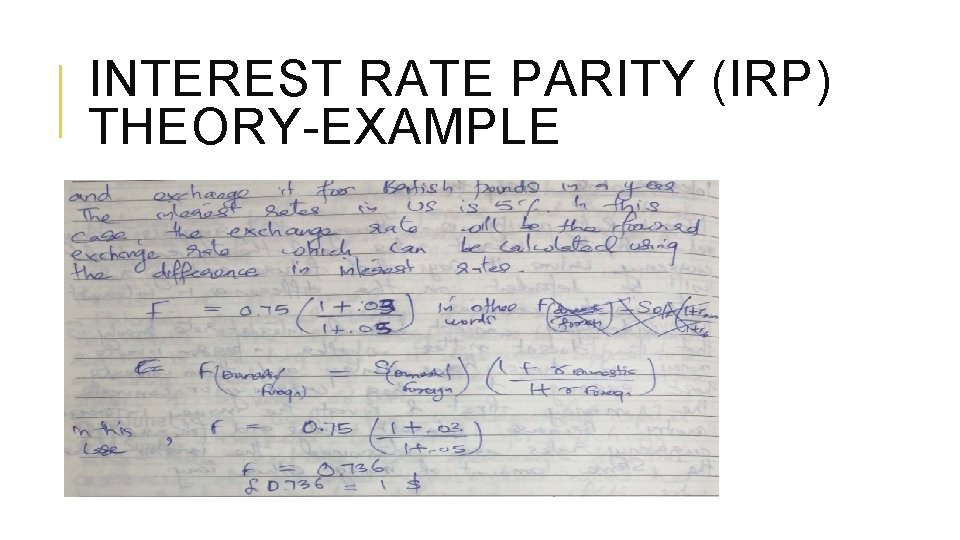 INTEREST RATE PARITY (IRP)
THEORY-EXAMPLE
and exchange it for British pounds in a year
The interest rates in US is 5%. In this
case, the exchange rate will be the forward
exchange rate which can be calculated using
the difference in interest rates.
F = 0.75 (1+.03 / 1+.05) in other words F
F (Domestic / Foreign) = S (Domestic / Foreign) (1 + r Domestic / 1+ r Foreign)
In this case, f = 0.75 (1+.03 / 1+.05)
f = 0.736
£0.736 = 1 $